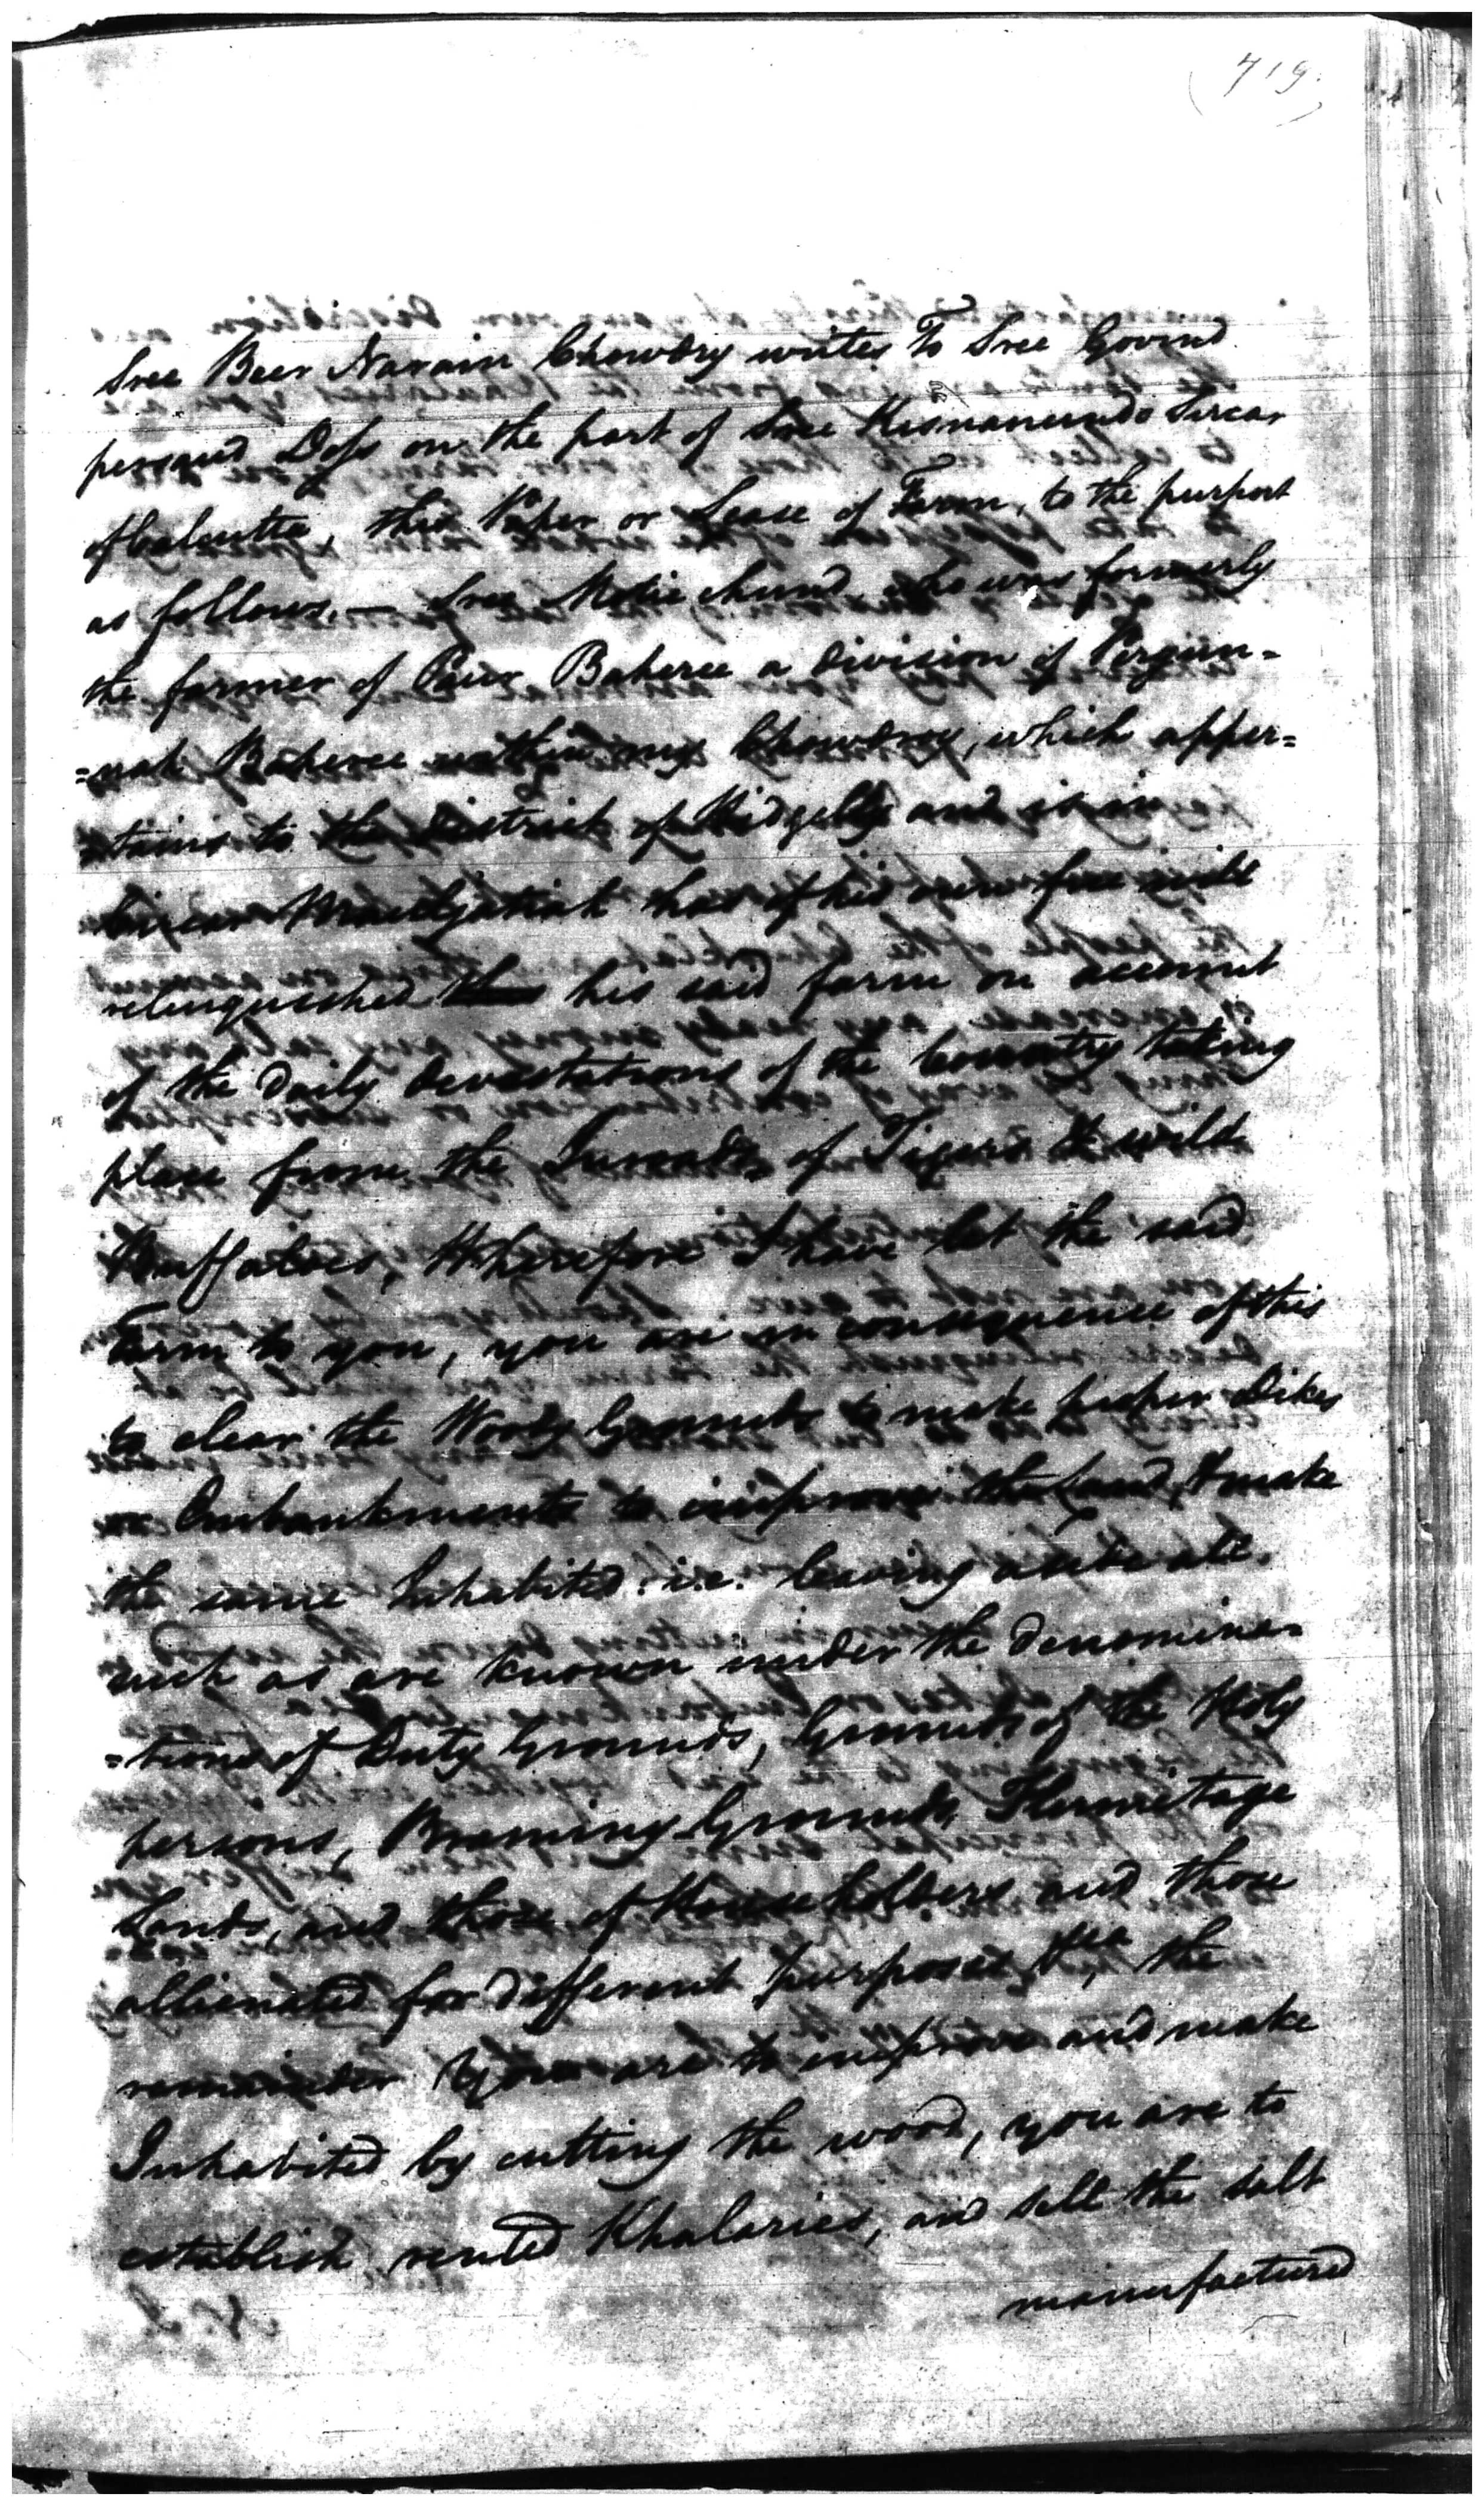 (719.)
Sree Beer Narain Chowdry writes To Sree Govind
persaud Doss on the part of Sree Kisnanundo Sircar
of Calcutta, this Paper or Lease of Farm, to the purport
as follows. — Sree Motie chund, who was formerly
the farmer of Paier Baheree a division of Pergun=
=nah Baheree within my Chowdry, which apper=
=tains to the District of Hidgelly and is in
Sircar has of his own free will
relinquished his said farm on account
of the daily devastations of the Country taking
place from the of Tigers & wild
Buffaloes, Wherefore I have let the said
Farm to you, you are in consequence of this
to clear the Woody Grounds to make proper Dikes
or Embankments to improve the Land, & make
the same Inhabited. i.e. leaving
such as are known under the denomina=
=tions of Duty Grounds, Grounds of the Holy
persons, Braminy Grounds, Hermitage
Lands, and those of Householders and those
allienated for different purposes &ca, the
remainder You are to improve and make
Inhabited by cutting the wood, you are to
establish rented Khalaries, and sell the salt
manufactured